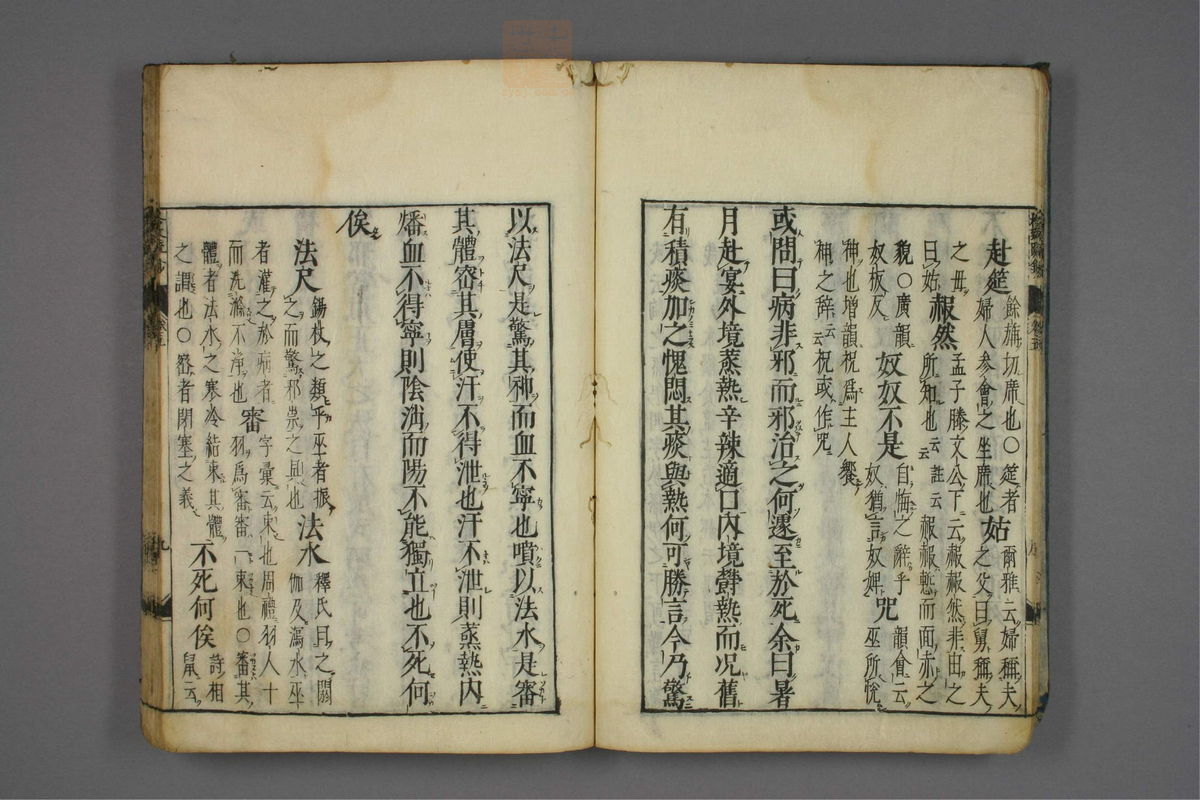 赴筵 餘旃切席也○筵者
婦人參會之坐席也 姑 爾雅云婦稱夫
之父曰舅稱夫
之母
曰姑 赧然 孟子滕文公下云赧赧然非由之
所知也云云註云赧赧慙而面赤之
貌○廣韻
奴板反 奴奴不是 自悔之辭乎
奴猶言奴婢 咒 韻會云
巫所悅
神也增韻祝爲主人饗
神之辭云云祝或作咒
或問曰病非邪而邪治之何遽至於死余曰暑
月赴宴外境蒸熱辛辣適口內境欝熱而況舊
有積痰加之愧悶其痰與熱何可勝言今乃驚
以法尺是驚其神而血不寧也噴以法水是審
其體密其膚使汗不得泄也汗不泄則蒸熱內
燔血不得寧則陰消而陽不能獨立也不死何
俟
法尺 錫杖之類乎巫者振
之而驚邪祟之具也 法水 釋氏曰之閼
伽及瀉水巫
者灌之於病者
而洗滌不淨也 審 字彙云束也周禮羽人十
羽爲審審一束也○審其
體者法水之寒冷結束其體
之謂也○密者閉塞之義 不死何俟 詩相
鼠云